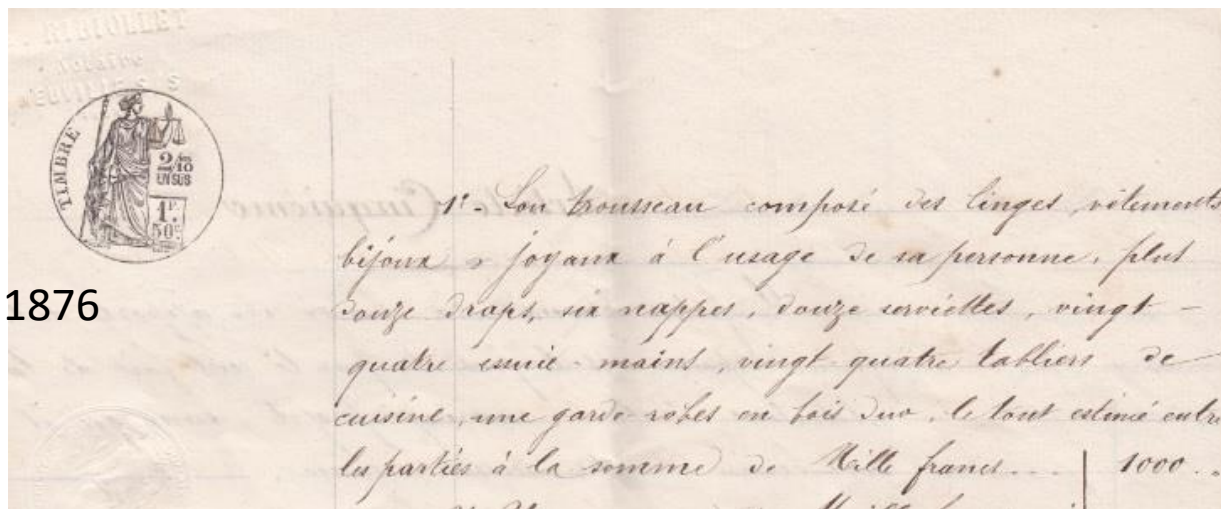 RIBIOLLET
notaire
TIMBRE
2/10
EN SUS
1F.
50c
1876
1° - Son trousseau composé des linges, vêtements
bijoux & joyaux à l'usage de sa personne, plus
douze draps, six nappes, douze serviettes, vingt -
quatre essuie-mains, vingt quatre tabliers de
cuisine, une garde-robes en bois dur, le tout estimé entre
les parties à la somme de Mille francs... | 1000 ..